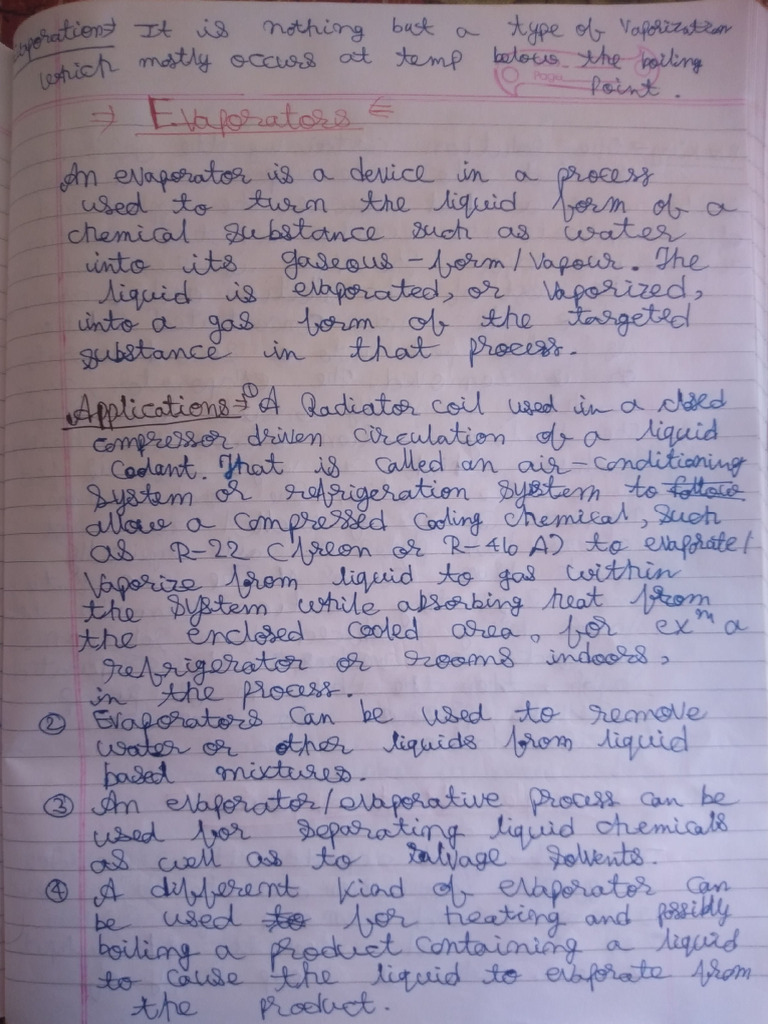 Evaporation→ It is nothing but a type of Vaporization
which mostly occurs at temp below the boiling
Point.
Page
⇒ Evaporators ⇐
An evaporator is a device in a process
used to turn the liquid form of a
chemical substance such as water
into its gaseous-form/Vapour. The
liquid is evaporated, or vaporized,
into a gas form of the targeted
substance in that process.
Applications→① A Radiator coil used in a closed
compressor driven circulation of a liquid
coolant. That is called an air-conditioning
System or refrigeration system to follow
allow a compressed cooling chemical, such
as R-22 (freon or R-410 A) to evaporate/
Vaporize from liquid to gas within
the system while absorbing heat from
the enclosed cooled area, for exᵐ a
refrigerator or rooms indoors,
in the process.
② Evaporators can be used to remove
water or other liquids from liquid
based mixtures.
③ An evaporator/evaporative process can be
used for separating liquid chemicals
as well as to salvage solvents.
④ A different kind of evaporator can
be used to for heating and possibly
boiling a product containing a liquid
to cause the liquid to evaporate from
the product.